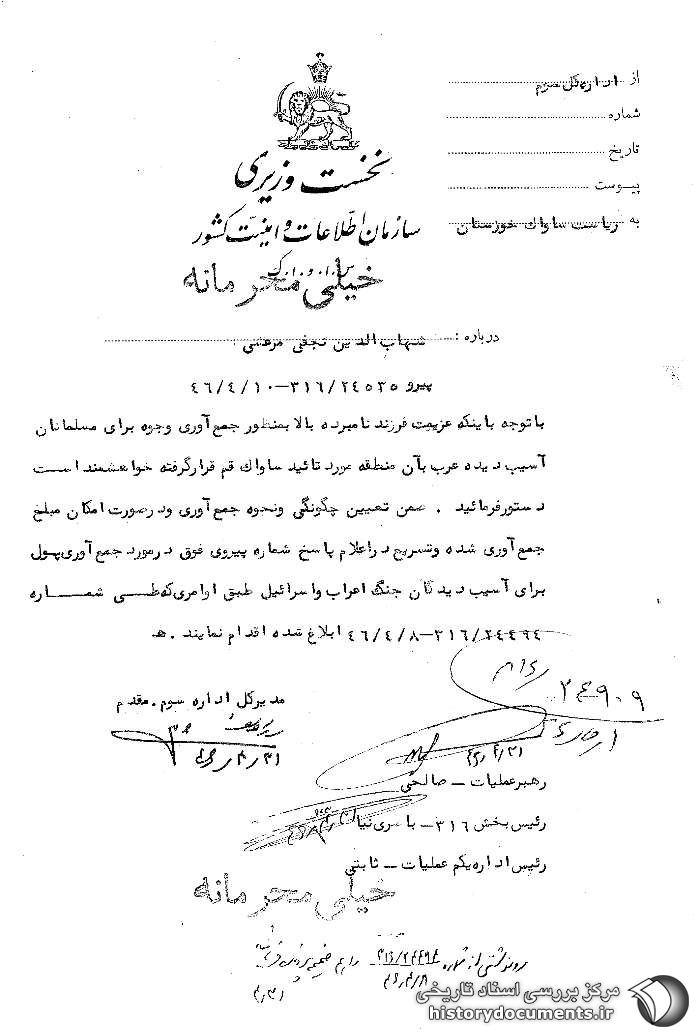 از اداره کل سوم
شماره
تاریخ
پیوست
به ریاست ساواک خوزستان
نخست وزیری
سازمان اطلاعات و امنیت کشور
س.ا.و.ا.ک
خیلی محرمانه
درباره : شهاب الدین نجفی مرعشی
پیرو ۳۱۶/۲۴۵۳۵-۴۶/۴/۱۰
با توجه باینکه عزیمت فرزند نامبرده بالا بمنظور جمع آوری وجوه برای مسلمانان
آسیب دیده عرب بآن منطقه مورد تائید ساواک قم قرار گرفته خواهشمند است
دستور فرمائید . ضمن تعیین چگونگی و نحوه جمع آوری و در صورت امکان مبلغ
جمع آوری شده و تسریع در اعلام پاسخ شماره پیروی فوق در مورد جمع آوری پول
برای آسیب دیدگان جنگ اعراب و اسرائیل طبق اوامری که طی شماره
۳۱۶/۲۴۴۹۴-۴۶/۴/۸ ابلاغ شده اقدام نمایند . ھ
۲۴۹۰۹
مدیر کل اداره سوم . مقدم
رهبر عملیات - صالحی
رئیس بخش ۳۱۶ - یاسری نیا
رئیس اداره یکم عملیات - ثابتی
خیلی محرمانه
رونوشتی از شماره ۳۱۶/۲۴۴۹۴
مرکز بررسی اسناد تاریخی
historydocuments.ir